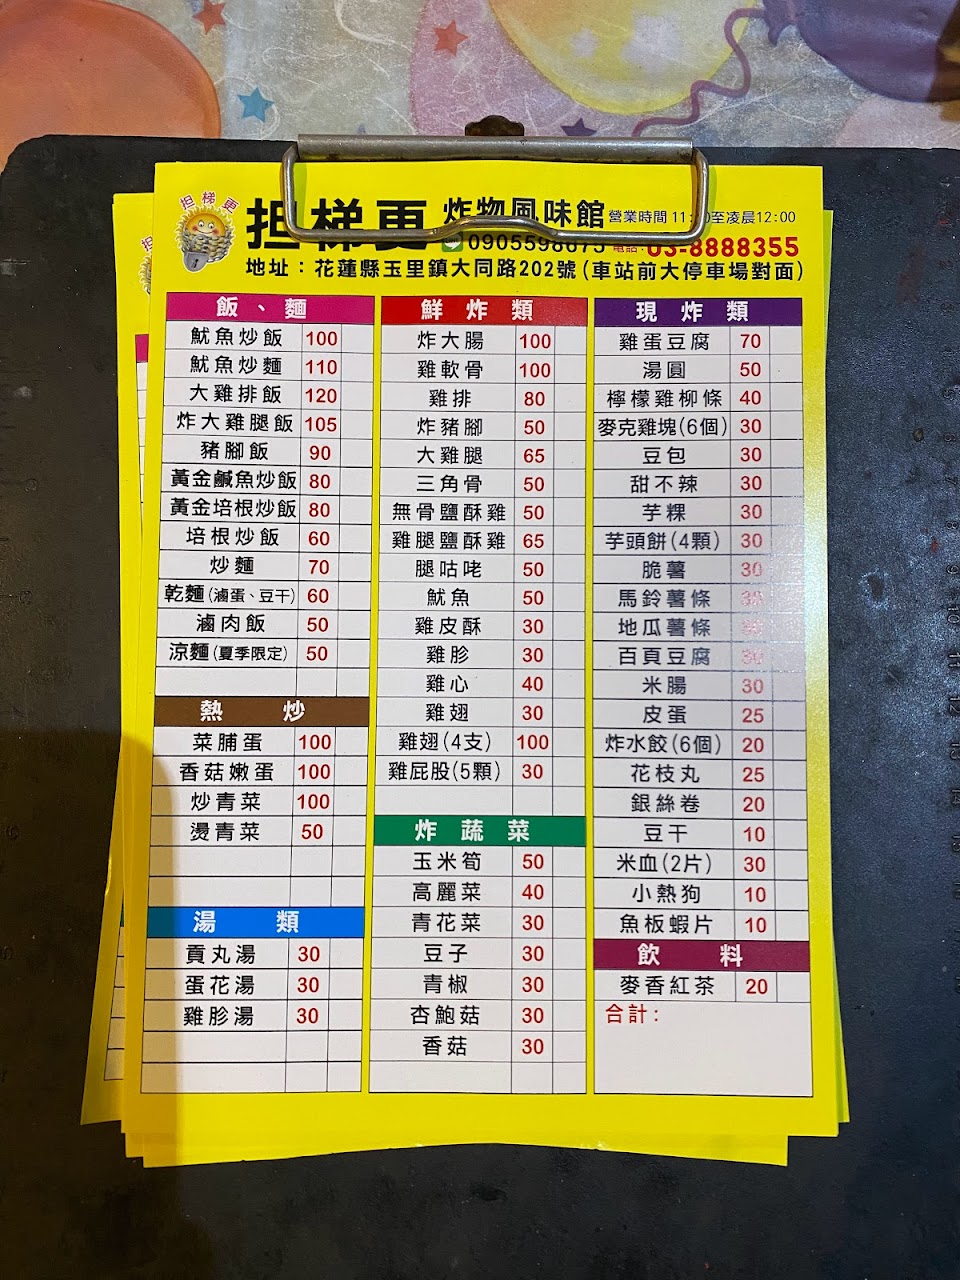 担梯更
担梯更 炸物風味館 營業時間 11:00至凌晨12:00
0905598675 電話: 03-8888355
地址:花蓮縣玉里鎮大同路202號(車站前大停車場對面)
飯、麵
魷魚炒飯 100
魷魚炒麵 110
大雞排飯 120
炸大雞腿飯 105
豬腳飯 90
黃金鹹魚炒飯 80
黃金培根炒飯 80
培根炒飯 60
炒麵 70
乾麵(滷蛋、豆干) 60
滷肉飯 50
涼麵(夏季限定) 50
熱炒
菜脯蛋 100
香菇嫩蛋 100
炒青菜 100
燙青菜 50
湯類
貢丸湯 30
蛋花湯 30
雞胗湯 30
鮮炸類
炸大腸 100
雞軟骨 100
雞排 80
炸豬腳 50
大雞腿 65
三角骨 50
無骨鹽酥雞 50
雞腿鹽酥雞 65
腿咕咾 50
魷魚 50
雞皮酥 30
雞胗 30
雞心 40
雞翅 30
雞翅(4支) 100
雞屁股(5顆) 30
炸蔬菜
玉米筍 50
高麗菜 40
青花菜 30
豆子 30
青椒 30
杏鮑菇 30
香菇 30
現炸類
雞蛋豆腐 70
湯圓 50
檸檬雞柳條 40
麥克雞塊(6個) 30
豆包 30
甜不辣 30
芋粿 30
芋頭餅(4顆) 30
脆薯 30
馬鈴薯條 30
地瓜薯條
百頁豆腐 30
米腸 30
皮蛋 25
炸水餃(6個) 20
花枝丸 25
銀絲卷 20
豆干 10
米血(2片) 30
小熱狗 10
魚板蝦片 10
飲料
麥香紅茶 20
合計: